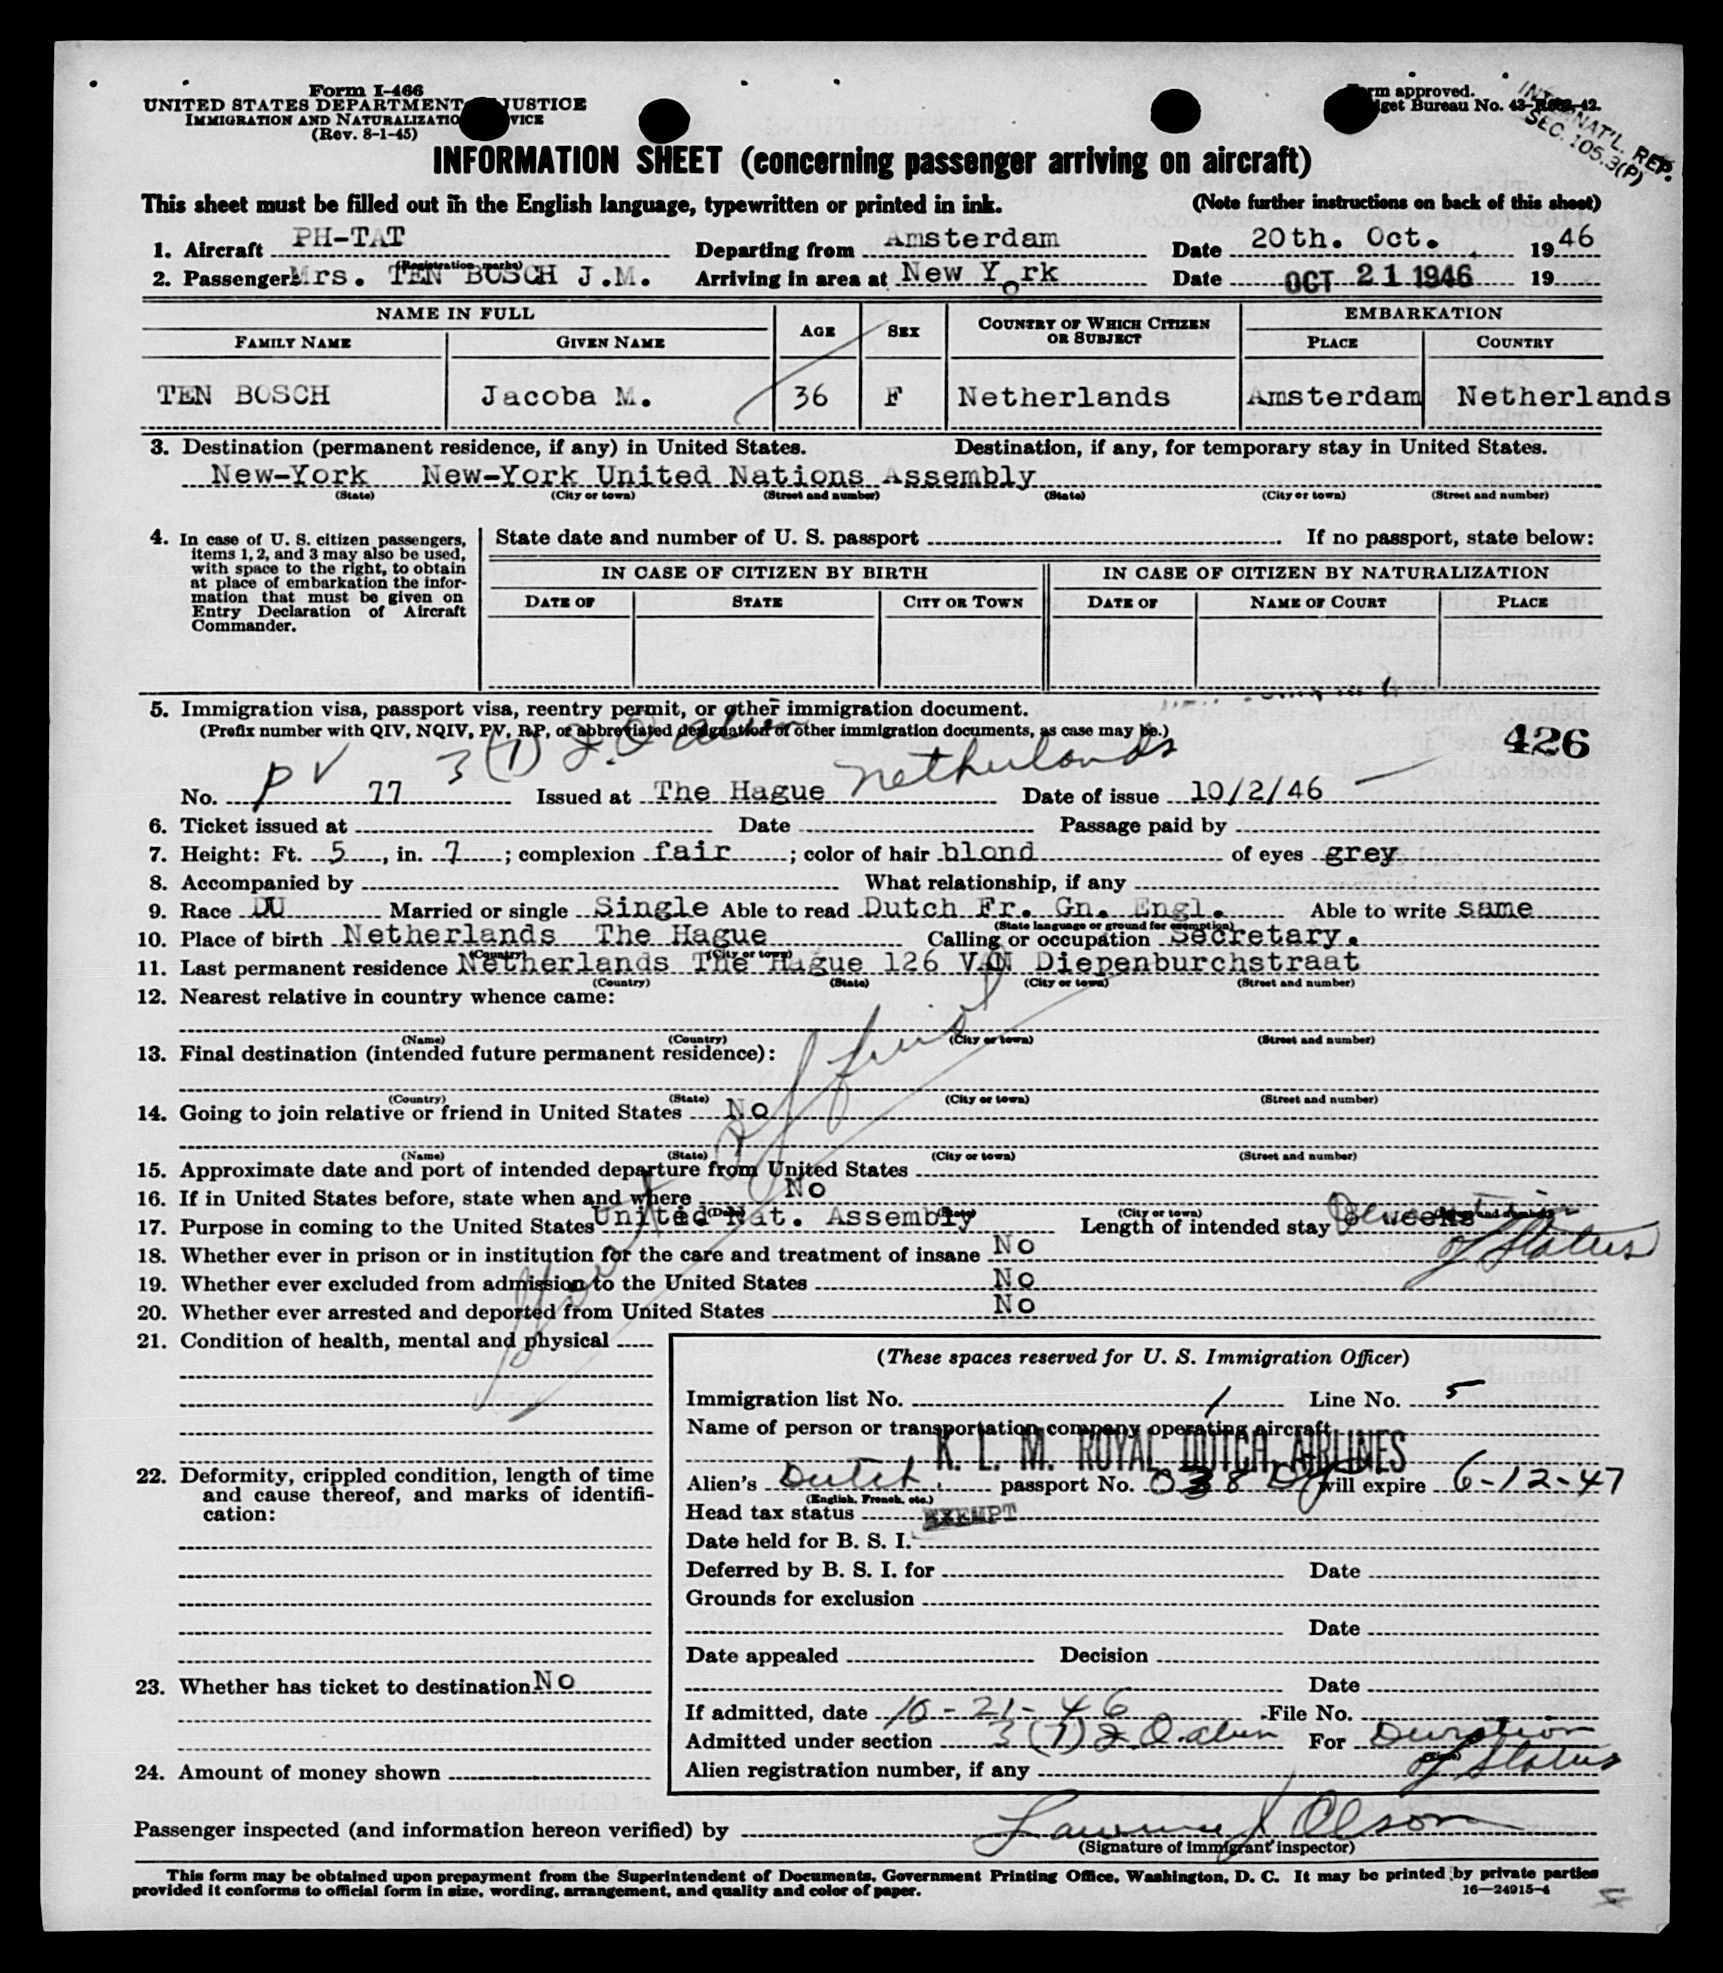 Form I-466
UNITED STATES DEPARTMENT JUSTICE
IMMIGRATION AND NATURALIZATIO VICE
(Rev. 8-1-45)
rm approved.
get Bureau No. 43-
INTERNAT'L. REP.
SEC. 105.3(P)
INFORMATION SHEET (concerning passenger arriving on aircraft)
This sheet must be filled out in the English language, typewritten or printed in ink. (Note further instructions on back of this sheet)
1. Aircraft PH-TAT Departing from Amsterdam Date 20th. Oct. 1946
(Registration marks)
2. Passenger Mrs. TEN BOSCH J.M. Arriving in area at New York Date OCT 21 1946 19
NAME IN FULL AGE SEX COUNTRY OF WHICH CITIZEN OR SUBJECT EMBARKATION
FAMILY NAME GIVEN NAME PLACE COUNTRY
TEN BOSCH Jacoba M. 36 F Netherlands Amsterdam Netherlands
3. Destination (permanent residence, if any) in United States. Destination, if any, for temporary stay in United States.
New-York New-York United Nations Assembly
(State) (City or town) (Street and number) (State) (City or town) (Street and number)
4. In case of U. S. citizen passengers,
items 1, 2, and 3 may also be used,
with space to the right, to obtain
at place of embarkation the infor-
mation that must be given on
Entry Declaration of Aircraft
Commander.
State date and number of U. S. passport If no passport, state below:
IN CASE OF CITIZEN BY BIRTH IN CASE OF CITIZEN BY NATURALIZATION
DATE OF STATE CITY OR TOWN DATE OF NAME OF COURT PLACE
5. Immigration visa, passport visa, reentry permit, or other immigration document.
(Prefix number with QIV, NQIV, PV, RP, or abbreviated designation of other immigration documents, as case may be.)
426
3(7) I.O alien
Netherlands
No. PV 77 Issued at The Hague Date of issue 10/2/46
6. Ticket issued at Date Passage paid by
7. Height: Ft. 5, in. 7; complexion fair; color of hair blond of eyes grey
8. Accompanied by What relationship, if any
9. Race DU Married or single Single Able to read Dutch Fr. Gn. Engl. Able to write same
(State language or ground for exemption)
10. Place of birth Netherlands The Hague Calling or occupation Secretary.
(Country) (City or town)
11. Last permanent residence Netherlands The Hague 126 VAN Diepenburchstraat
(Country) (State) (City or town) (Street and number)
12. Nearest relative in country whence came:
(Name) (Country) (City or town) (Street and number)
13. Final destination (intended future permanent residence):
(Country) (State) (City or town) (Street and number)
14. Going to join relative or friend in United States No
(Name) (State) (City or town) (Street and number)
15. Approximate date and port of intended departure from United States
16. If in United States before, state when and where No
(Date) (State) (City or town) (Street and number)
17. Purpose in coming to the United States United Nat. Assembly Length of intended stay 8 weeks
Duration
of Status
18. Whether ever in prison or in institution for the care and treatment of insane No
19. Whether ever excluded from admission to the United States No
20. Whether ever arrested and deported from United States No
21. Condition of health, mental and physical
22. Deformity, crippled condition, length of time
and cause thereof, and marks of identifi-
cation:
23. Whether has ticket to destination No
24. Amount of money shown
(These spaces reserved for U. S. Immigration Officer)
Immigration list No. 1 Line No. 5
Name of person or transportation company operating aircraft
K. L. M. ROYAL DUTCH AIRLINES
Alien's Dutch passport No. 038 will expire 6-12-47
(English, French, etc.)
Head tax status EXEMPT
Date held for B. S. I.
Deferred by B. S. I. for Date
Grounds for exclusion
Date
Date appealed Decision
Date
If admitted, date 10-21-46 File No.
Admitted under section 3(7) I.O. alien For Duration
of Status
Alien registration number, if any
Passenger inspected (and information hereon verified) by Lawrence J Olson
(Signature of immigrant inspector)
This form may be obtained upon prepayment from the Superintendent of Documents, Government Printing Office, Washington, D. C. It may be printed by private parties
provided it conforms to official form in size, wording, arrangement, and quality and color of paper.
16—24915-4